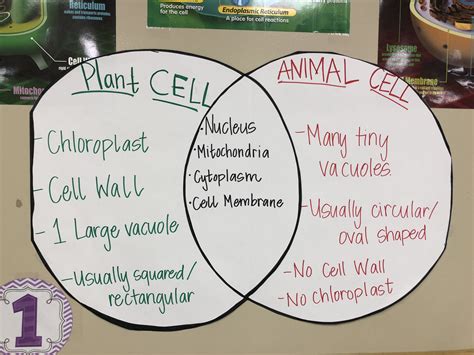 Produces energy
for the cell
Endoplasmic Reticulum
A place for cell reactions
Lysosome
Membrane
Cell Wall
Mitochon
Plant CELL
- Chloroplast
- Cell Wall
- 1 Large vacuole
- Usually squared/
rectangular
• Nucleus
• Mitochondria
• Cytoplasm
• Cell Membrane
ANIMAL CELL
- Many tiny
vacuoles
- Usually circular/
oval shaped
- No Cell Wall
- No chloroplast
1